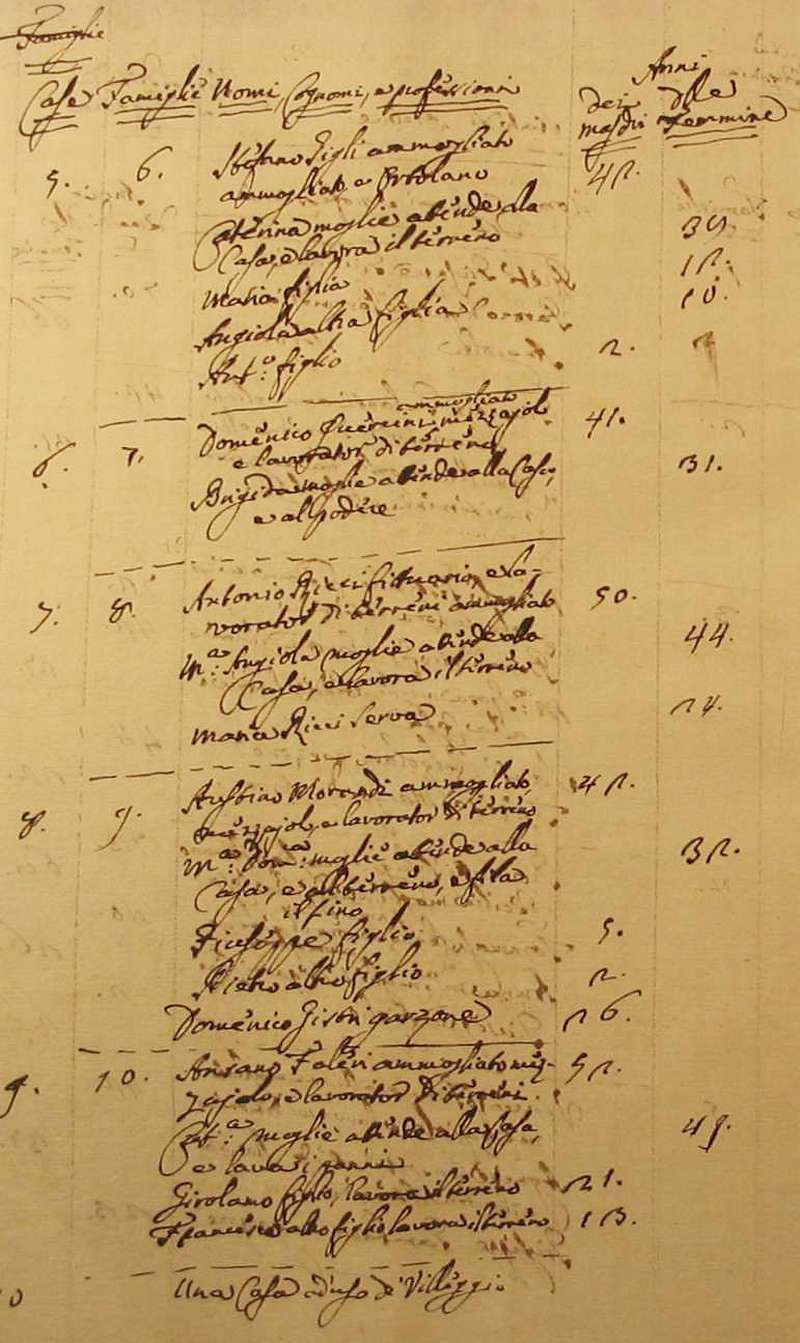 Famiglie
Case Famiglie Nomi, Cognomi, e professioni Anni
dei maschi delle Femmine
5. 6. Stefano Gigli ammogliato 42.
ammogliato e Ortolano
Caterina moglie attende alla 39.
Casa, e lavora il terreno
Maria figlia 12.
Angiola altra figlia 10.
Ant.o figlio 2.
ammogliato
6. 7. Domenico Guerrini mezzajolo 41.
e lavorator di terreni
Brigida moglie attende alla Casa, 31.
e al Podere
7. 8. Antonio Ricci fittuario, e la- 50.
vorator di terreni ammogliato
M.a Angiola moglie attende alla 44.
Casa, e lavora il terreno
Maria Ricci Serva 24.
8. 9. Morandi ammogliato, 42.
mezzajolo, e lavorator di terreno
M.a Dom.a moglie attende alla 32.
Casa, e al terreno, e fila
il lino
Giuseppe figlio 5.
Pietro altro figlio 2.
Domenico garzone 26.
9. 10. Ansano Faleri ammogliato mez- 52.
zajolo, e lavorator di terreni.
Cat.a moglie attende alla Casa, 49.
e lava i panni
Girolamo figlio, lavora il terreno 21.
Francesco altro figlio lavora il terreno 13.
Una Casa ad uso di Villeggi.